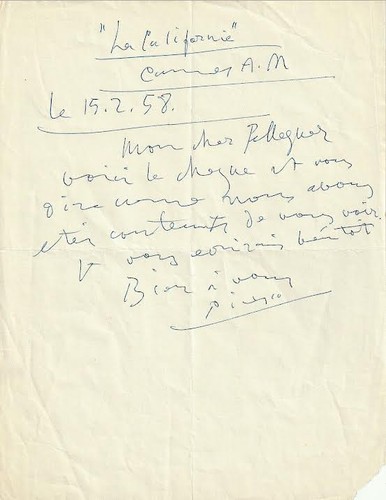 "La Californie"
Cannes A.M
le 15.2.58.
Mon cher Pellequer
voici le cheque et vous
dire comme nous avons
étés contents de vous voir.
Je vous ecrirais bientôt
Bien à vous
Picasso